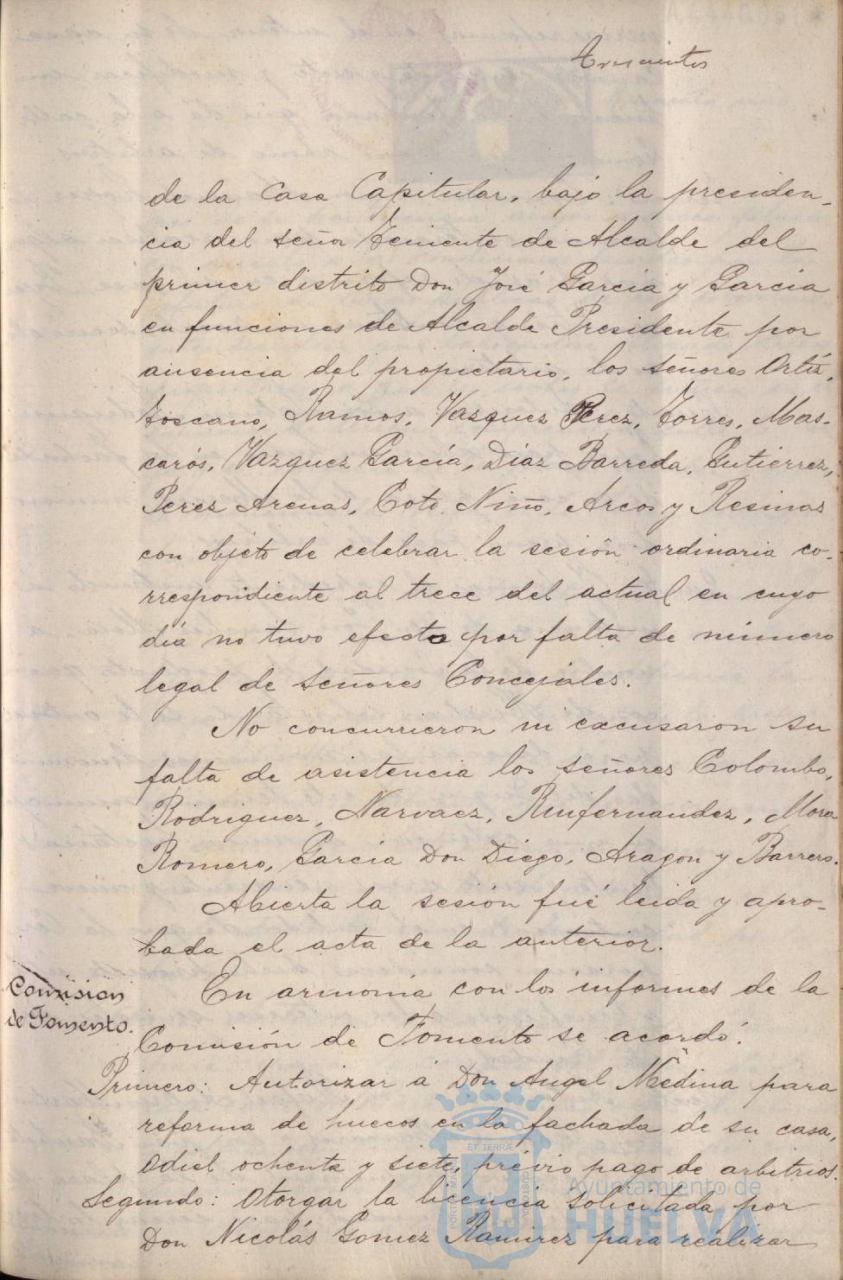 Trescientos
de la Casa Capitular, bajo la presiden-
cia del señor Teniente de Alcalde del
primer distrito Don José Garcia y Garcia
en funciones de Alcalde Presidente por
ausencia del propietario, los señores Ortíz,
Toscano, Ramos, Vazquez Perez, Torres, Mas-
carós, Vazquez García, Diaz Barreda, Gutierrez,
Perez Arenas, Coto, Niño, Arcos y Resinas
con objeto de celebrar la sesión ordinaria co-
rrespondiente al trece del actual en cuyo
día no tuvo efecto por falta de número
legal de señores Concejales.
No concurrieron ni excusaron su
falta de asistencia los señores Colombo,
Rodriguez, Narvaez, Ruifernandez, Mora
Romero, Garcia Don Diego, Aragon y Barrero.
Abierta la sesión fué leida y apro-
bada el acta de la anterior.
Comision
de Fomento.
En armonia con los informes de la
Comisión de Fomento se acordó:
Primero: Autorizar á Don Angel Medina para
reforma de huecos en la fachada de su casa,
Odiel ochenta y siete, prévio pago de arbitrios.
Segundo: Otorgar la licencia solicitada por
Don Nicolás Gomez Ramirez para realizar
Ayuntamiento de
HUELVA